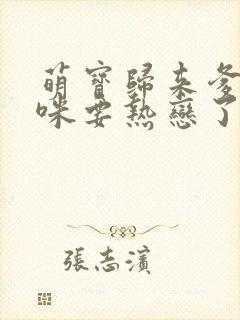 萌寶歸來爹
咪要熱戀了
張志濱